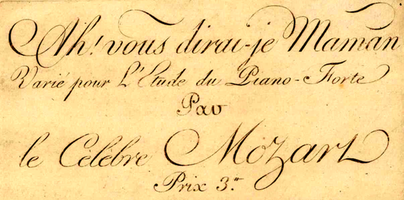 Ah! vous dirai-je Maman
Varié pour L'Etude du Piano-Forte
Par
le Célèbre Mozart
Prix 3.tt